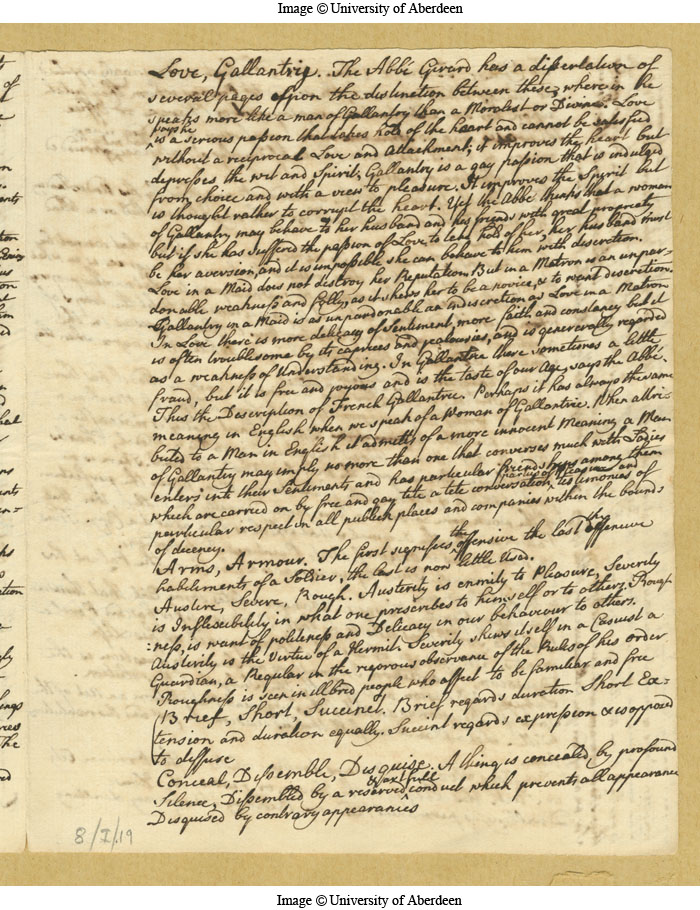 Image © University of Aberdeen
Love, Gallantry. The Abbé Girard has a dissertation of
several pages upon the distinction between these, wherein he
speaks more like a man of Gallantry than a Moralist or Divine. Love
says he
is a serious passion that takes hold of the heart and cannot be satisfied
without a reciprocal Love and Attachment; it improves the heart but
depresses the wit and Spirit; Gallantry is a gay passion that is indulged
from choice and with a view to pleasure. It improves the Spirit but
is thought rather to corrupt the heart. Yet the Abbe thinks that a woman
of Gallantry may behave to her husband and his friends with great propriety
but if she has sufferd the passion of Love to take hold of her, her husband must
be her aversion, and it is impossible she can behave to him with discretion.
Love in a Maid does not distroy her Reputation. But in a Matron is an unpar-
donable weakness and folly, as it shews her to be a novice, & to want discretion.
Gallantry in a Maid is as unpardonable an indiscretion as Love in a Matron
In Love there is more delicacy of Sentiment, more faith and constancy but it
is often troublesome by its caprices and jealousies, and is generally regarded
as a weakness of Understanding. In Gallantrie there sometimes a little
fraud, but it is free and joyous and is the taste of our Age, says the Abbé.
Thus the Description of French Gallantrie. Perhaps it has always the same
meaning in English when we speak of a Woman of Gallantrie. When attri-
buted to a Man in English it admitts of a more innocent Meaning a Man
of Gallantry may imply no more than one that converses much with Ladies
enters into their Sentiments and has particular friendships among them
which are carried on by free and gay tete a tete conversation,
parties of pleasure and
testimonies of
particular respect in all publick places and companies within the bounds
of decency.
Arms, Armour. The first signifies the offensive the last the defensive
habiliments of a Soldier, the last is now little used.
Austere, Severe, Rough. Austerity is enmity to Pleasure, Severity
is Inflexibility in what one prescribes to himself or to others, Rough-
:ness, is want of politeness and Delicacy in our behaviour to others.
Austerity is the Virtue of a Hermit. Severity shews itself in a Casuist a
Guardian, a Regular in the regorous observance of the Rules of his order
Roughness is seen in ill bred people who affect to be familiar and free
Brief, Short, Succinct. Brief regards duration Short Ex-
tension and duration equally. Succint regards expression & is opposed
to diffuse
Conceal, Dissemble, Disguise. A thing is concealed by profound
Silence, Dissembled by a reserved
& artfull
conduct which prevents all appearance
Disguised by contrary appearances
8/I/19
Image © University of Aberdeen